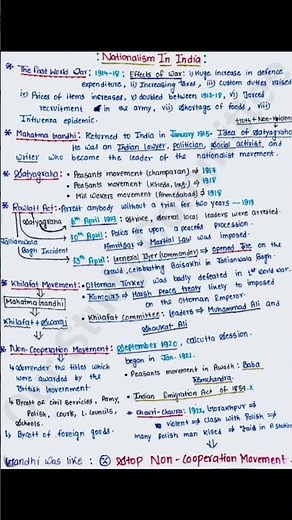 : Nationalism In India :
* The First World War : 1914-18 : Effects of War : i) Huge increase in defence
expenditure, ii) Increasing Taxes, iii) Custom duties raised
iv) Prices of items increased, v) doubled between 1913-18, vi) Forced
recruitment in the army, vii) Shortage of foods, viii)
Influenza epidemic.
* Mahatma Gandhi : Returned to India in January 1915. Idea of Satyagraha
He was an Indian lawyer, politician, social activist, and
writer who became the leader of the nationalist movement.
* Satyagraha : • Peasants movement (champaran) → 1917
• Peasants movement (Kheda, Guj) → 1918
• Mill workers movement (Ahmedabad) → 1918
* Rowlatt Act : Arrest anybody without a trial for two years — 1919
Satyagraha
6th April 1919 : Strike, several local leaders were arrested.
10th April : Police fire upon a peaceful procession
Amritsar → Martial Law was imposed.
Jallianwala
Bagh Incident
13th April → General Dyer (commander) → opened fire on the
crowd, celebrating Baisakhi in Jallianwala Bagh.
* Khilafat Movement : • Ottoman Turkey was badly defeated in 1st world war.
Mahatma Gandhi
• Rumours → Harsh peace treaty likely to imposed
on the Ottoman Emperor.
Khilafat + Swaraj
• Khilafat committee : leaders → Muhammad Ali and
Shaukat Ali
* Non-Cooperation Movement : September 1920, calcutta session.
began in Jan. 1921.
↳ Surrender the titles which
were awarded by the
British Government
• Peasants movement in Awadh : Baba
Ramchandra.
↳ B'catt of civil Services, Army,
Police, courts, L. councils,
Schools.
• Indian Emigration Act of 1859.
• Chauri-chaura : 1922, Gorakhpur →
violent → clash with Police →
many police man killed →
↳ B'catt of foreign goods.
Gandhi was like : Stop Non-Cooperation Movement.